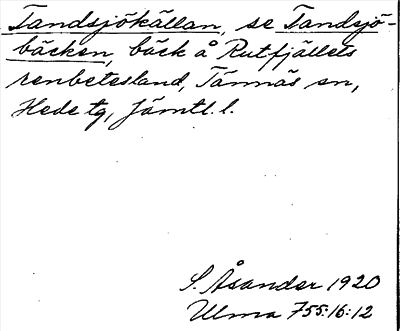 Tandsjökällan, se Tandsjö-
bäcken, bäck å Rutfjällets
renbetesland, Tännäs sn,
Hede tg, Jämtl. l.
S. Åsander 1920
Ulma 755:16:12